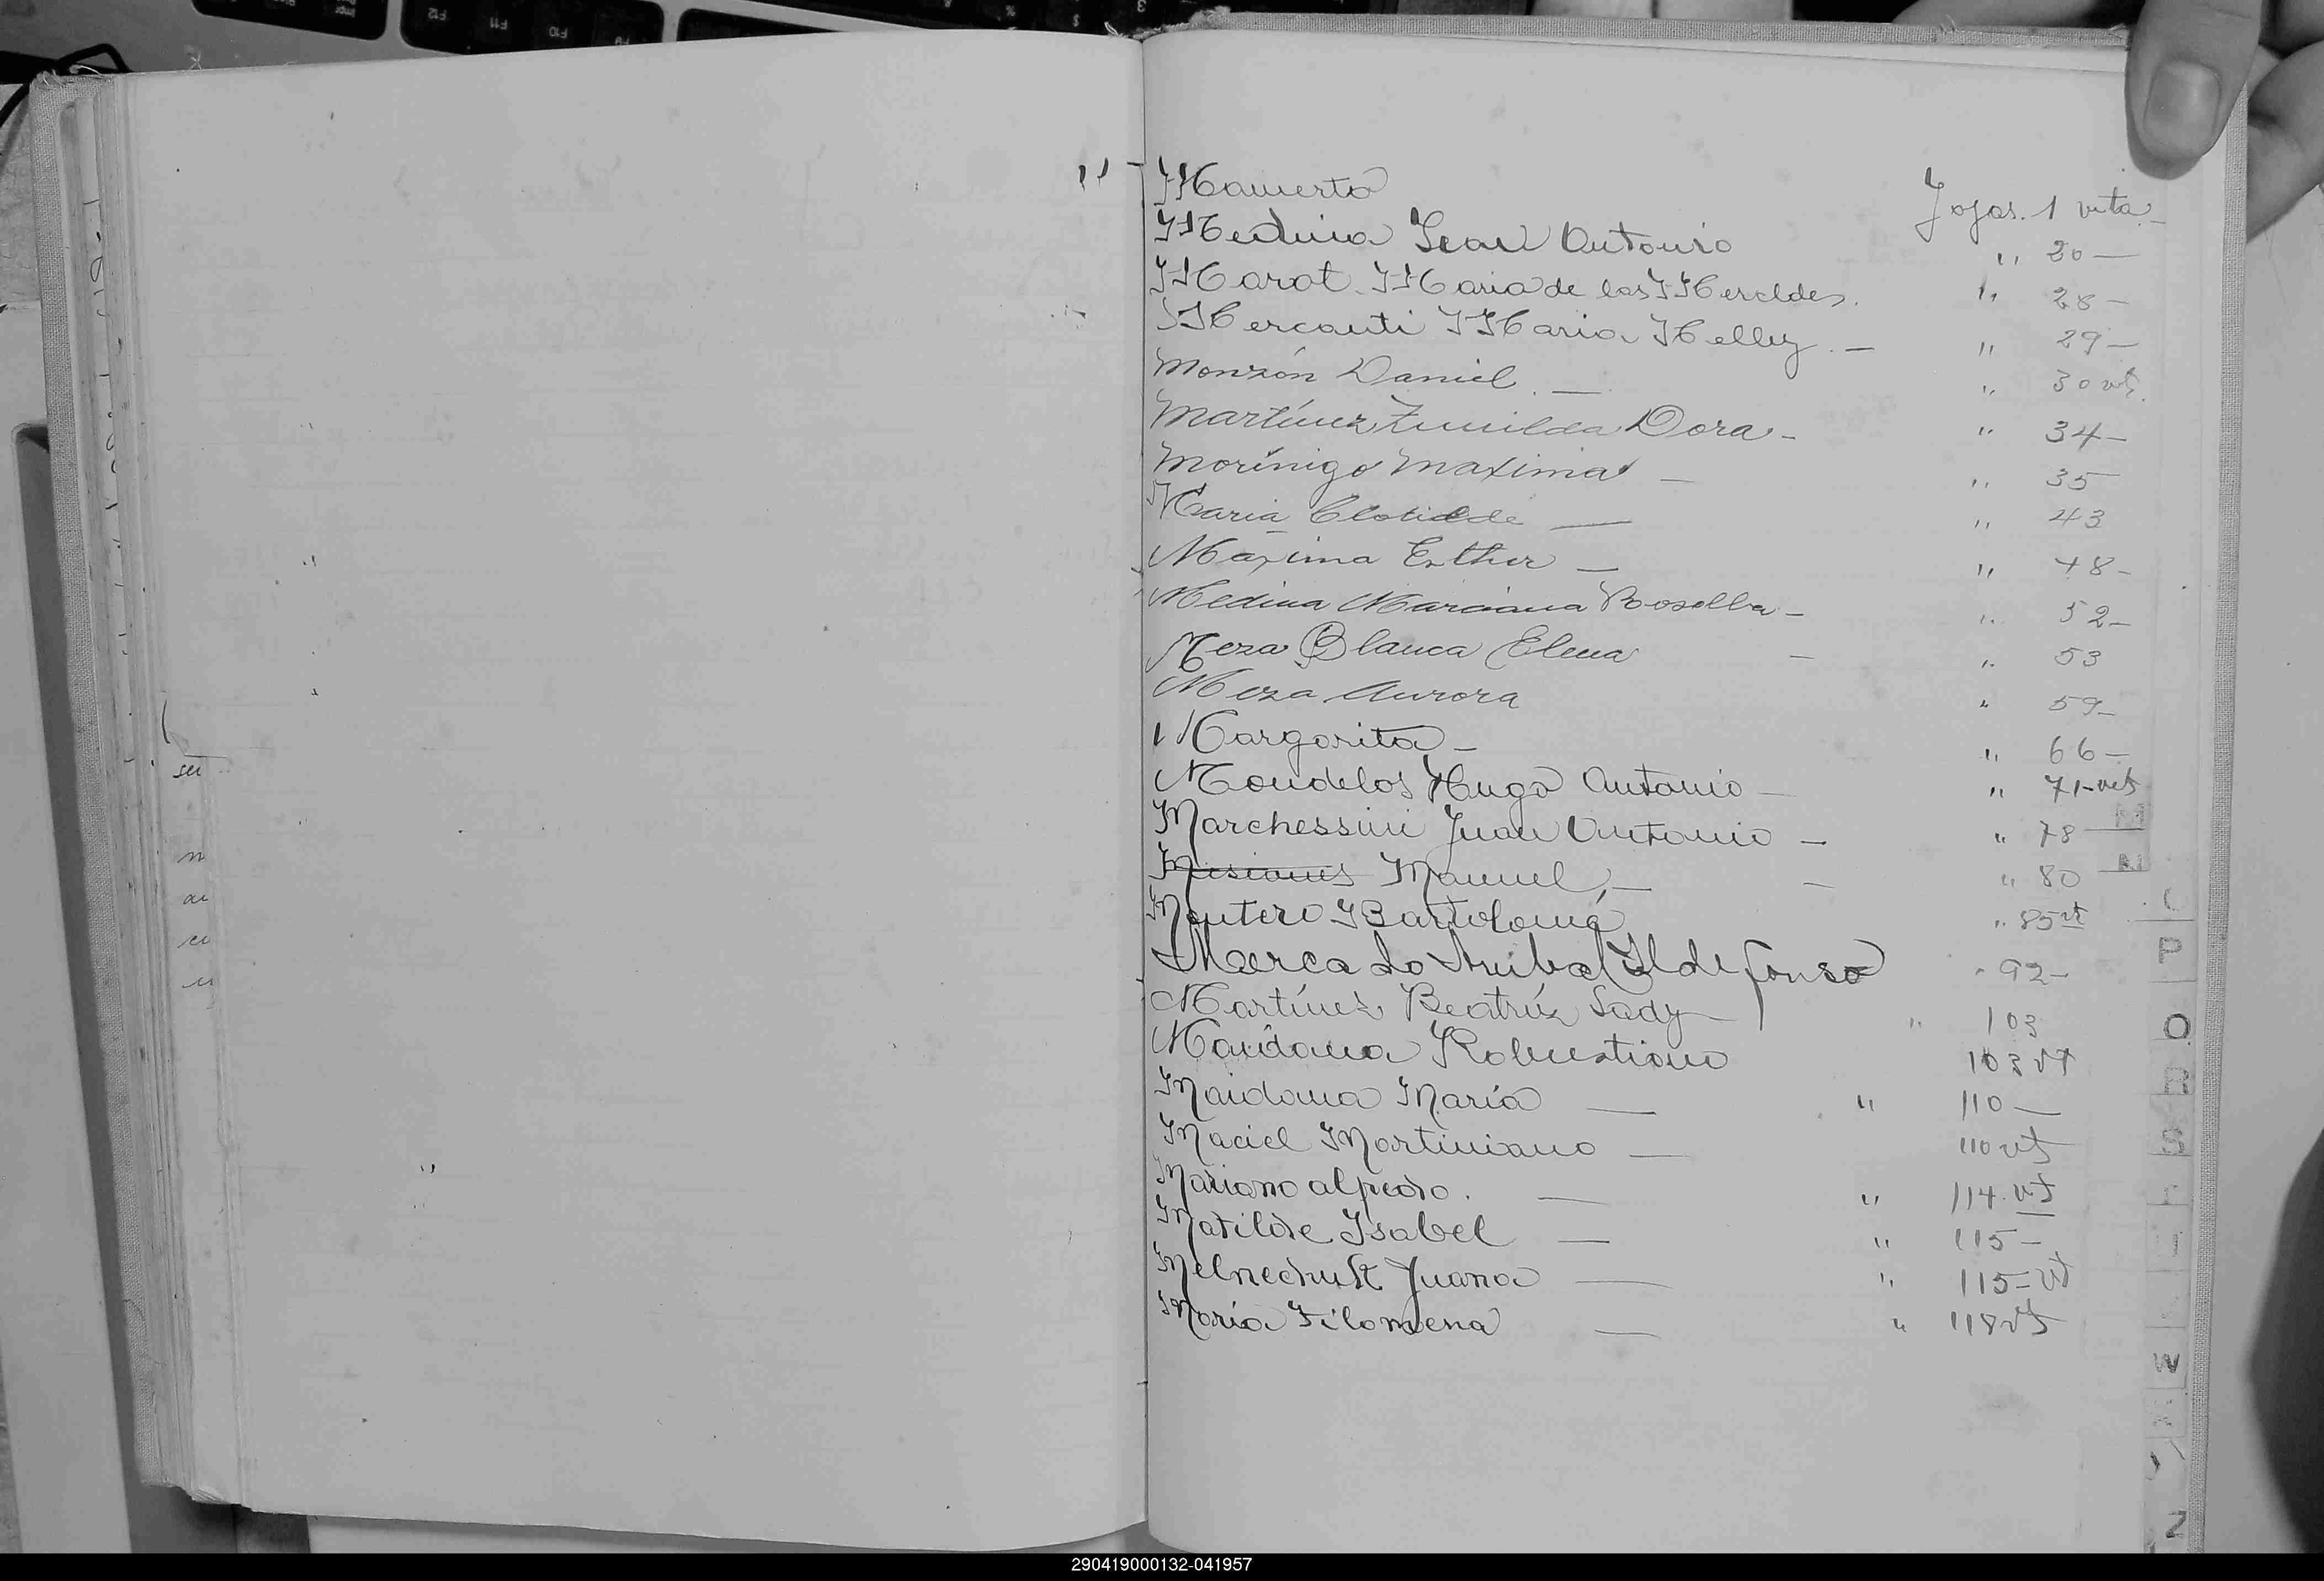 Mamerto Fojas. 1 vlta.
Medina Juan Antonio " 20 —
Marot Maria de las Mercedes. " 28 —
Mercanti Maria Nelly. — " 29 —
Monzón Daniel. — " 30 vlt.
Martínez Zunilda Dora - " 34 —
Morínigo Maxima — " 35
Maria Clotilde — " 43
Máxima Esther — " 48 -
Medina Marciana Rosalba - " 52 -
Meza Blanca Elena — " 53
Meza Aurora " 59 -
Margarita - " 66 —
Hugo Antonio — " 71-vlt
Marchessini Juan Antonio — " 78
Misiones Manuel, — — " 80
Montero Bartolomé " 85 vt
Mercado Ildefonso " 92 -
Martínez Beatríz Lady — " 103
Maidana Robustiano 103 vt
Maidana María — " 110 —
Maciel Martiniano — 110 vt
Mariano alfredo. — " 114. vt
Matilde Isabel — " 115 —
Juana — " 115 - vt
María Filomena — " 118 vt
P
Q
R
S
W
Z
290419000132-041957